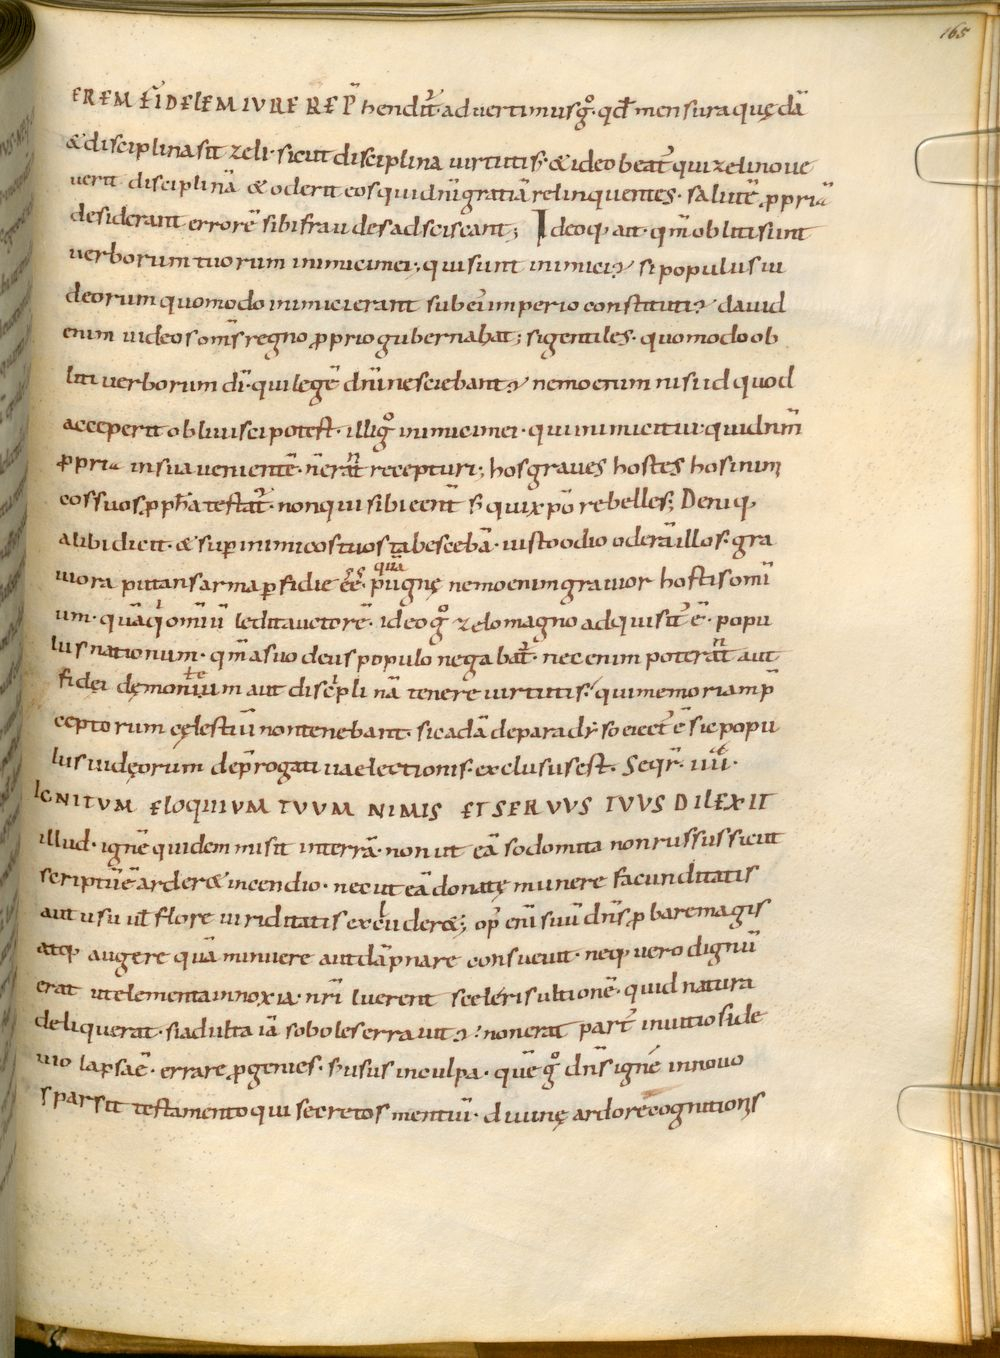 165
EREM FIDELEM IVRE REP̄ hendit̄· advertimus gͦ· qd̄ mensura quędā
& disciplina sit zeli· sicut disciplina virtutis· & ideo beat᷒ qui zeli noue
verit disciplinā & oderit eos qui dn̄i gratiā relinquentes· salutē ꝓpriā
desiderant errorē sibi fraudes adsciscant; Ideoq; ait· qm̄ obliti sunt
verborum tuorum inimici mei; qui sunt inimici? si populus iu
deorum quomodo inimici erant sub ei᷒ imperio constituti? david
enim iudeos om̄s regno ꝓprio gubernabat; si gentiles· quomodo ob
liti verborum dī· qui legē dn̄i nesciebant? nemo enim nisi id quod
acceperit oblivisci potest· illi gͦ inimici mei· qui inimici tui· qui dn̄m
ꝓpria in sua venientē· n̄ erant recepturi; hos graves hostes hos inim
cos suos ꝓpha testat᷒· non qui sibi eent s; qui xp̄o rebelles; Deniq;
alibi dicit· & sup inimicos tuos tabescebā· iusto odio oderā illos· gra
viora putans arma ꝑfidie ēē· quā pugnę nemo enim gravior hostis omī
um· quā qui omiū ledit auctorē· ideo gͦ zelo magno adquisit᷒ ē· popu
lus nationum· qm̄ a suo deus populo negabat᷒· nec enim poterant aut
fidei dęmonium aut disciplinā tenere virtutis· qui memoriam p̄
ceptorum cęlestiū non tenebant· sic adā de paradyso eiect᷒ ē sic popu
lus iudęorum de p̄rogativa electionis exclusus est· Seqr̄· iiii·
IGNITVM ELOQVIVM TVVM NIMIS ET SERVVS TVVS DILEXIT
illud· ignē quidem misit in terrā· non ut eā sodomita non russus sicut
scriptū ē arder& incendio· nec ut eā donatę munere facunditatis
aut usu ul̄ flore viriditatis excuder&; op᷒ eni suū dn̄s ꝓbare magis
atq; augere quā minuere aut dāpnare consuevit· neq; vero dignū
erat ut elementa innoxia· nr̄i luerent sceleris ultionē· quid natura
deliquerat· si adulta iā soboles erravit? non erat part᷒ in vitio si de
vio lapsa ē· errare ꝓgenies· s; usus in culpa· quē gͦ dn̄s ignē in novo
sparsit testamento qui secretos mentiū· divinę ardore cognitionis